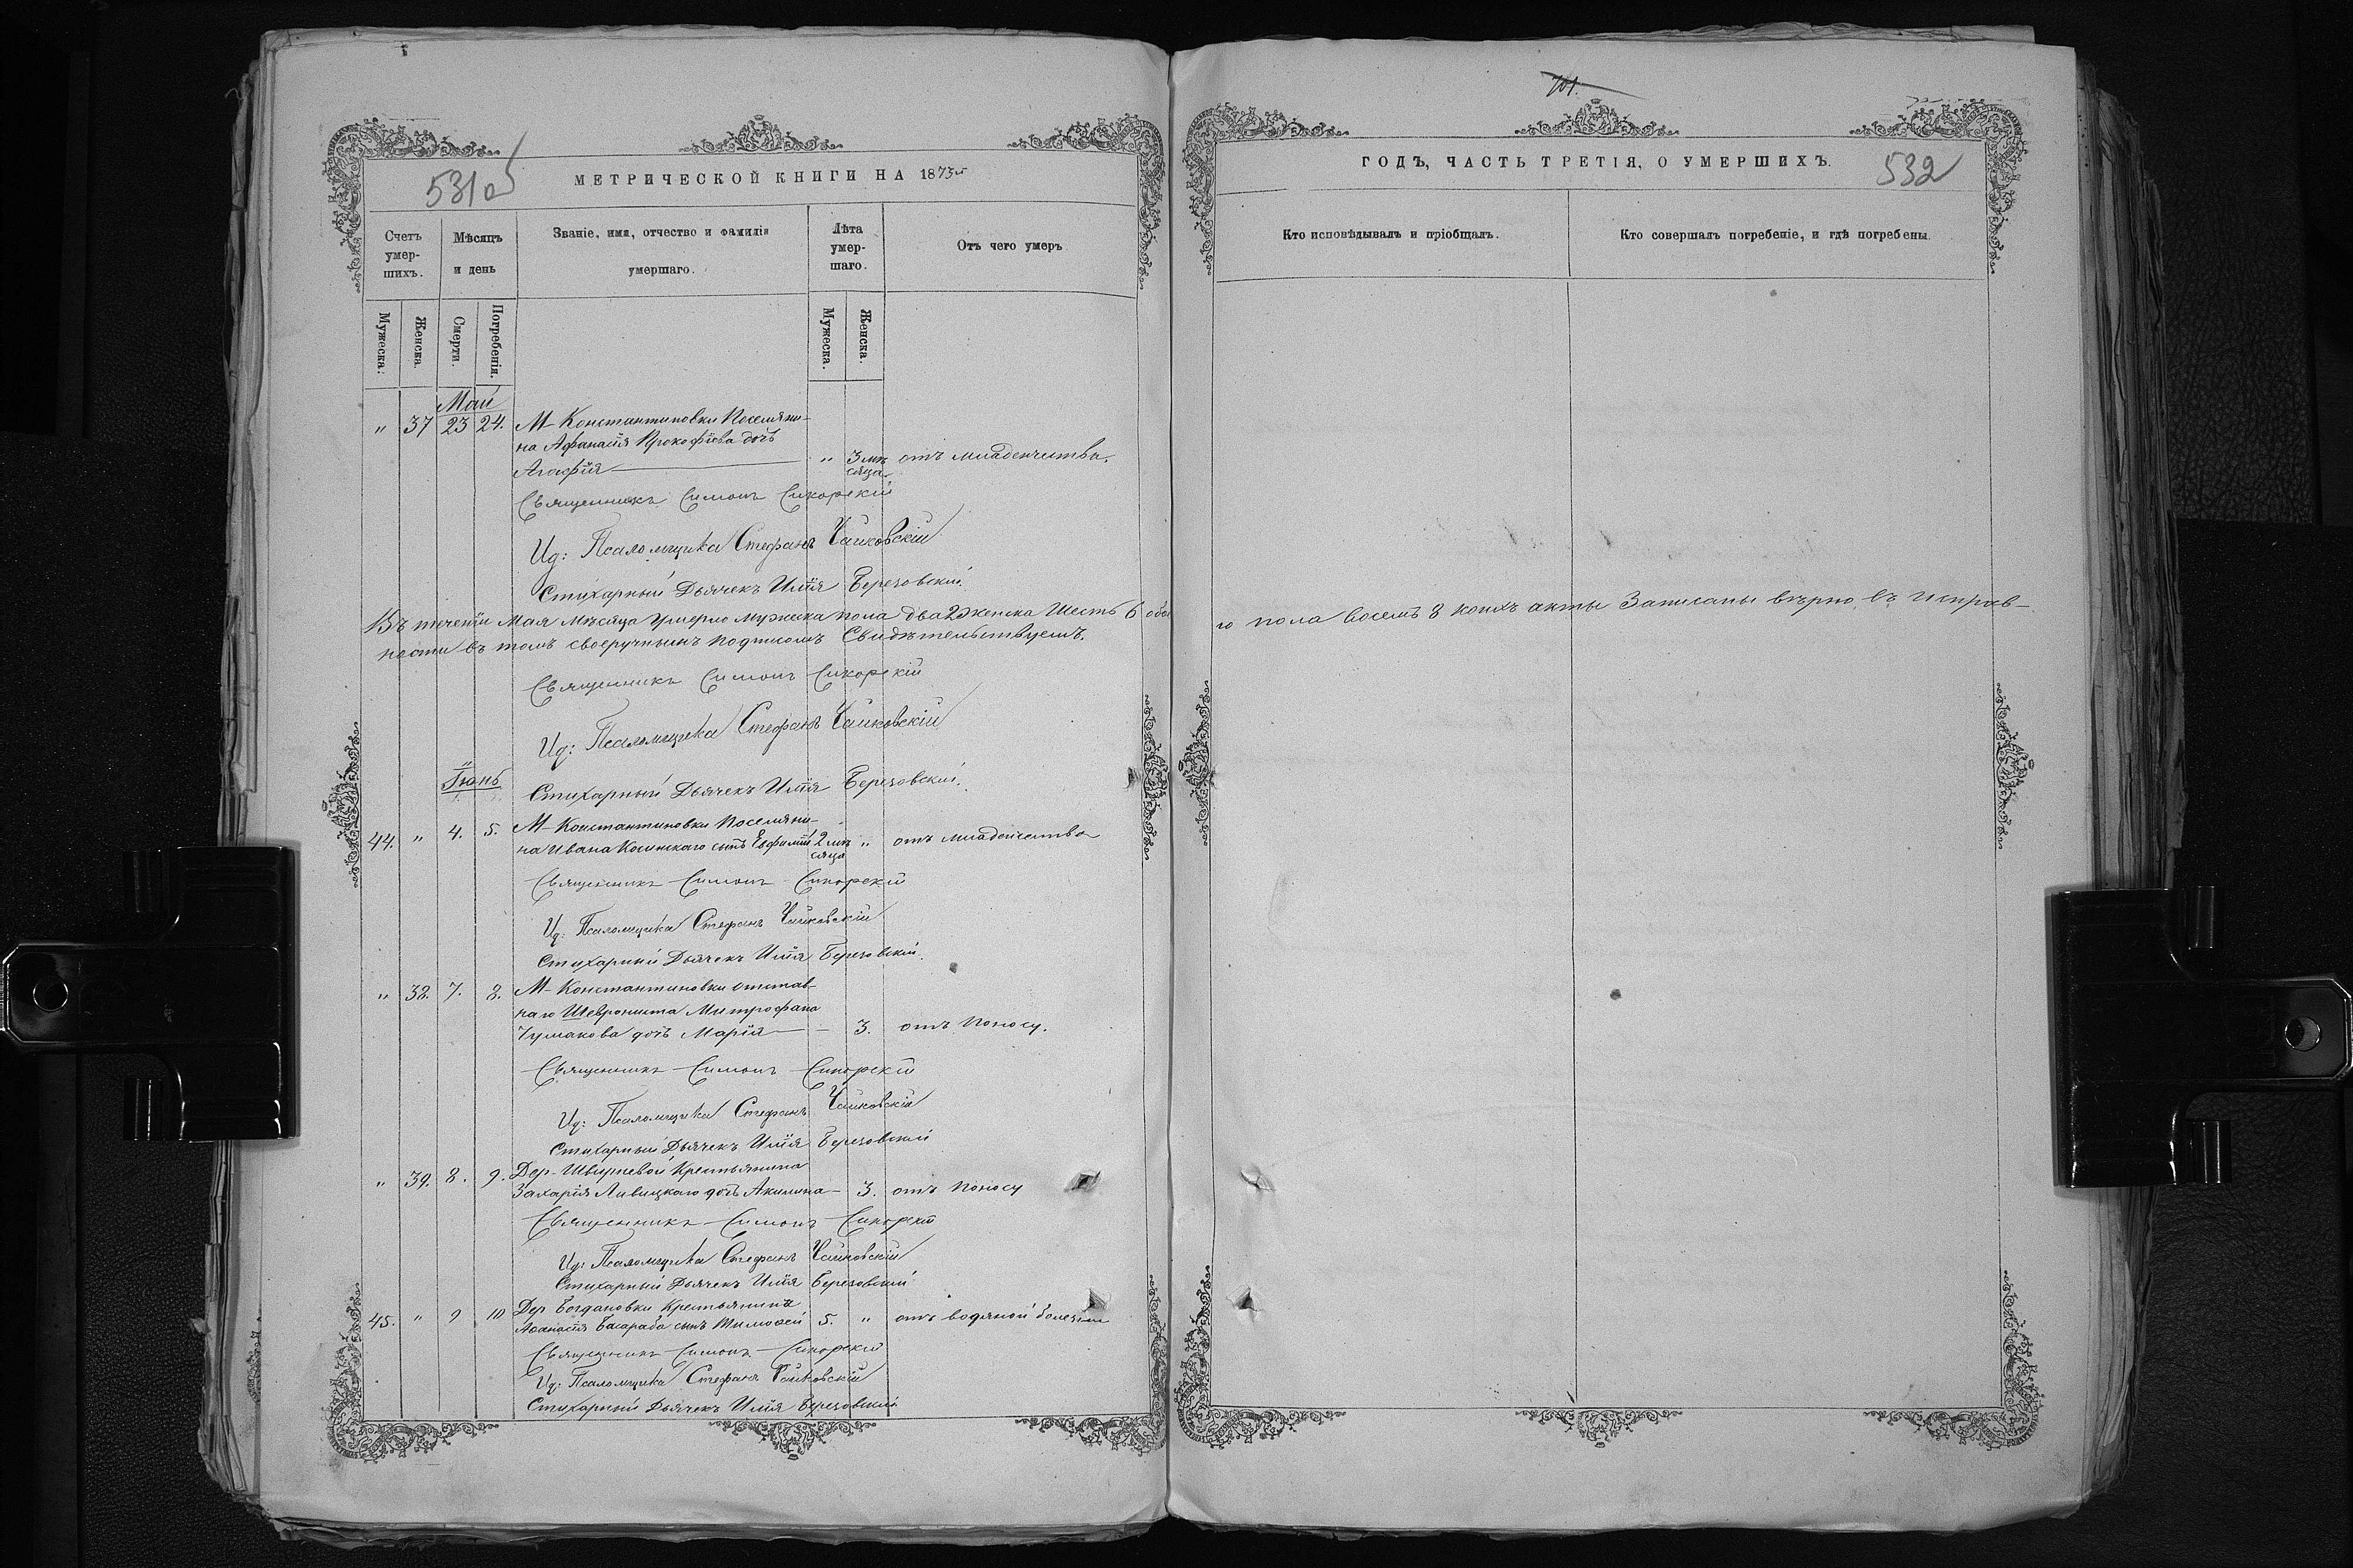 531 об
МЕТРИЧЕСКОЙ КНИГИ НА 1873й
Счетъ умер-шихъ.
Мѣсяцъ и день
Званіе, имя, отчество и фамилія умершаго.
Лѣта умер-шаго.
Отъ чего умеръ
Мужеска.
Женска.
Смерти.
Погребенія.
Мужеска.
Женска.
Май
" 37 23 24. М-Константиновки Поселяни-
на Афанасія Прокофіева дочь
Агафія " 3 мѣ- отъ младенчества.
сяца
Священникъ Симонъ Сикорскій
Ид: Псаломщика Стефанъ Чайковскій
Стихарный Дьячекъ Илія Березовскій.
Въ теченіи Мая Мѣсяца Умерло мужеска пола два 2 женска Шесть 6 обое
ности въ томъ своеручнымъ подписомъ Свидѣтельствуемъ.
Священникъ Симонъ Сикорскій
Ид: Псаломщика Стефанъ Чайковскій
Іюнь
Стихарный Дьячекъ Илія Березовскій.
44. " 4. 5. М-Константиновки Поселяни-
на Ивана Косинскаго сынъ Евфимій 2 мѣ- " отъ младенчества
сяца
Священникъ Симонъ Сикорскій
Ид: Псаломщика Стефанъ Чайковскій
Стихарный Дьячекъ Илія Березовскій.
" 38. 7. 8. М-Константиновки отстав-
наго Шеврониста Митрофана
Чумакова дочь Марія — 3. отъ поносу.
Священникъ Симонъ Сикорскій
Ид: Псаломщика Стефанъ Чайковскій
Стихарный Дьячекъ Илія Березовскій
" 39. 8. 9. Дер- Крестьянина
Захарія Ливицкаго дочь Акилина — 3. отъ поносу
Священникъ Симонъ Сикорскій
Ид: Псаломщика Стефанъ Чайковскій
Стихарный Дьячекъ Илія Березовскій
45. " 9 10 Дер Богдановки Крестьянина
Афанасія Басараба сынъ Тимофей 5. " отъ водяной болезни
Священникъ Симонъ Сикорскій
Ид: Псаломщика Стефанъ Чайковскій
Стихарный Дьячекъ Илія Березовскій
701.
ГОДЪ, ЧАСТЬ ТРЕТІЯ, О УМЕРШИХЪ.
532
Кто исповѣдывалъ и пріобщалъ.
Кто совершалъ погребеніе, и гдѣ погребены.
го пола восемь 8 коихъ акты Записаны вѣрно въ исправ-